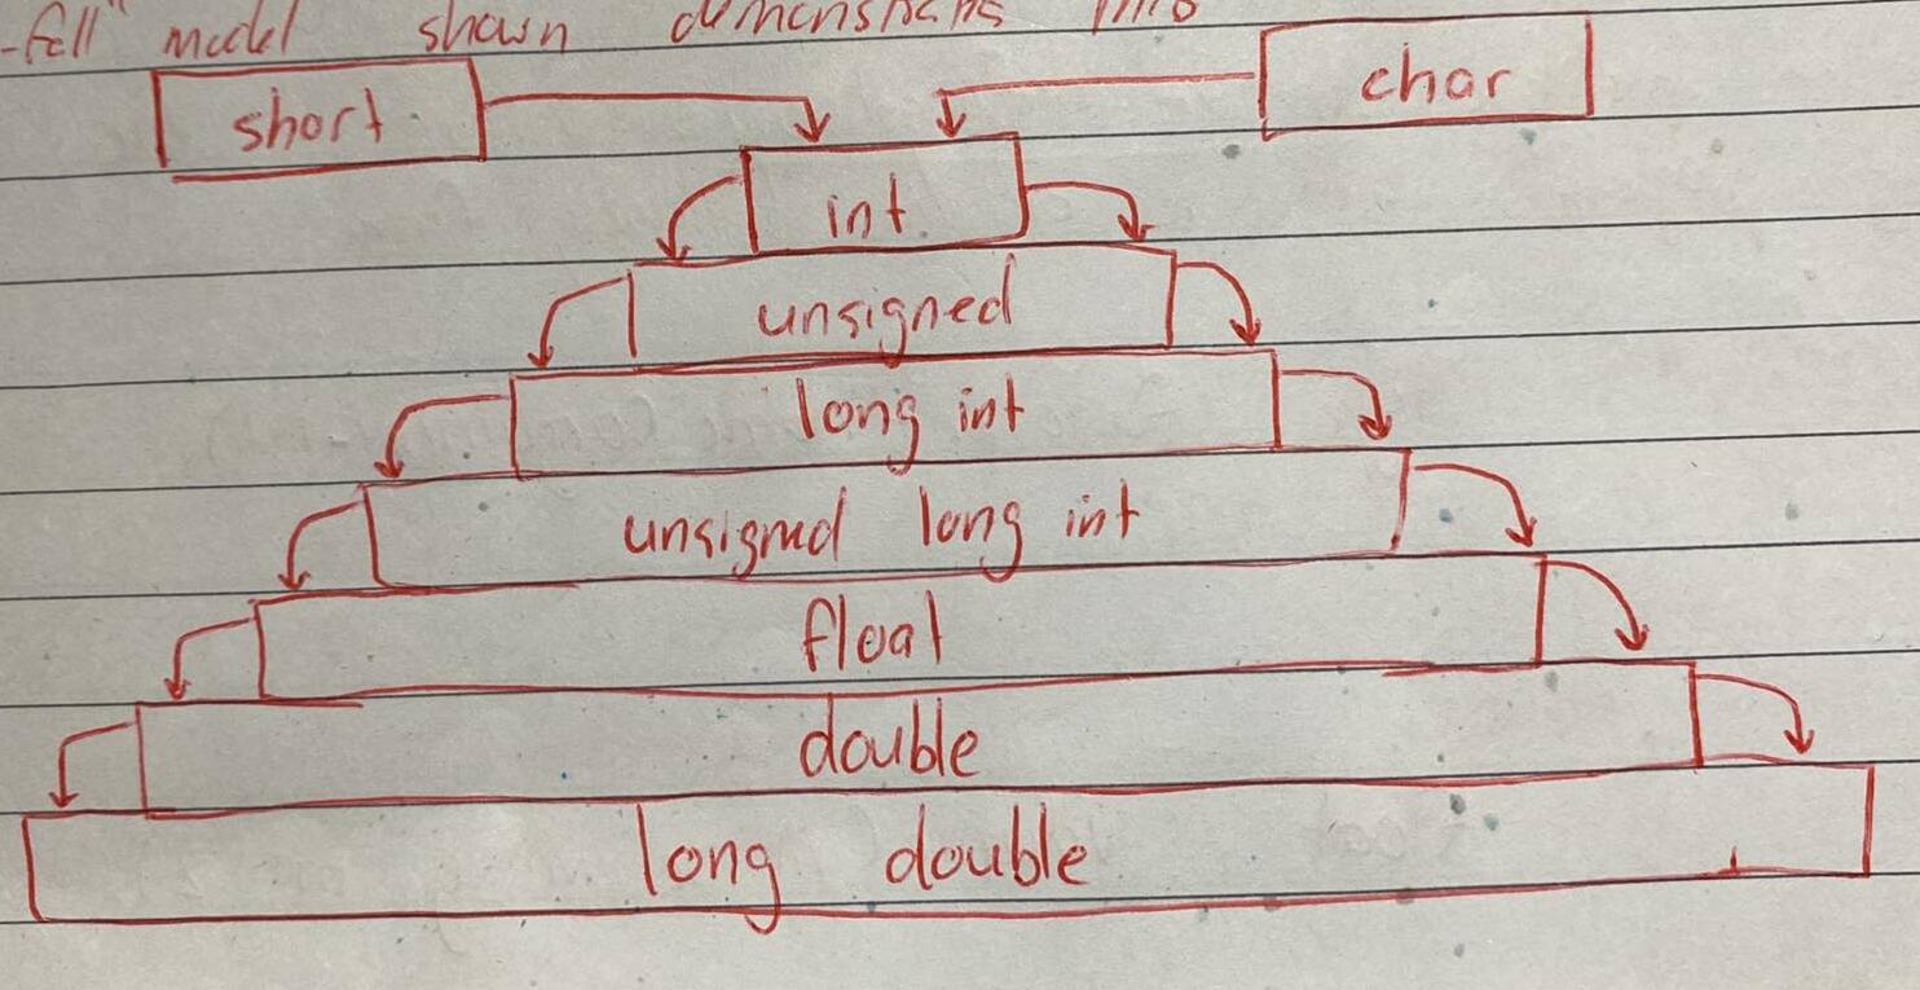 -fall" model shown dimensions into
short
char
int
unsigned
long int
unsigned long int
float
double
long double